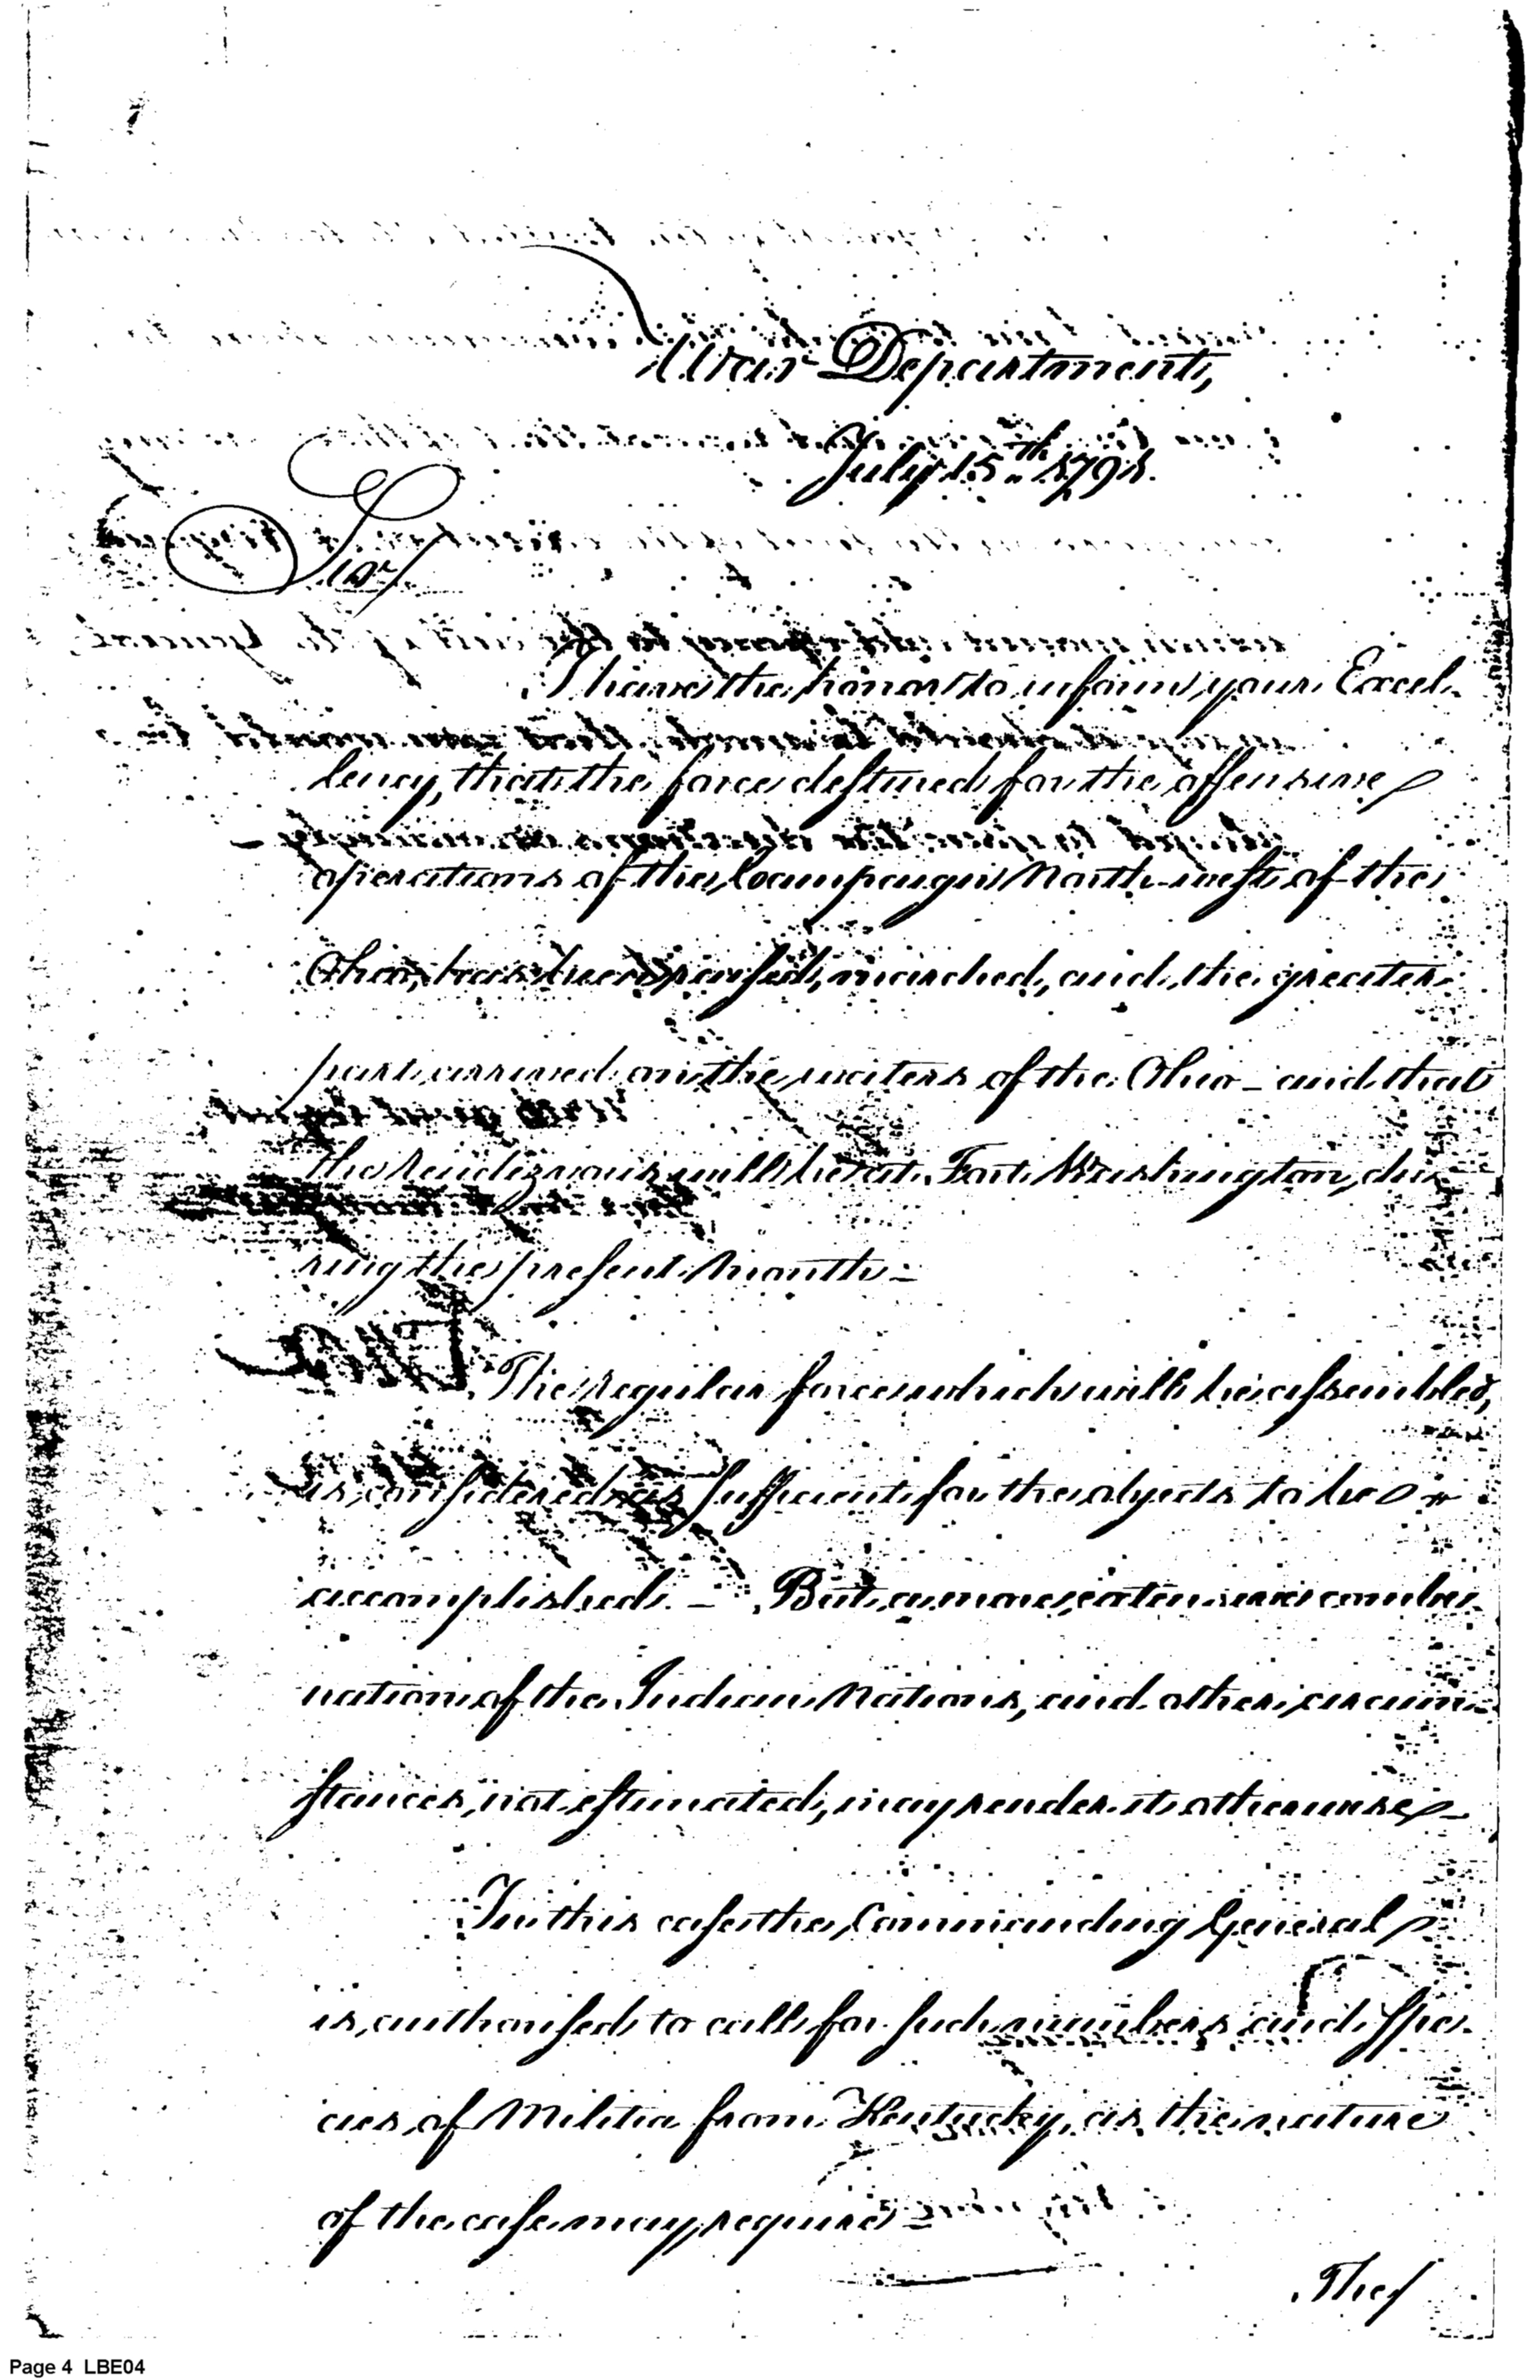 War Department,
July 15th 1791.
Sir
I have the honor to inform your Excel-
lency, that the force destined for the offensive
operations of the Campaign North-west of the
Ohio, has been raised, marched, and the greater
part arrived on the waters of the Ohio - and that
the rendezvous will be at Fort Washington, du-
ring the present Month -
The regular force which will be assembled,
is considered as sufficient for the objects to be
accomplished. - But a more extensive combi-
nation of the Indian Nations, and other circum-
stances, not estimated, may render it otherwise -
In this case the Commanding General
is authorised to call for such numbers and spe-
cies of Militia from Kentucky, as the nature
of the case may require -
The
Page 4 LBE04